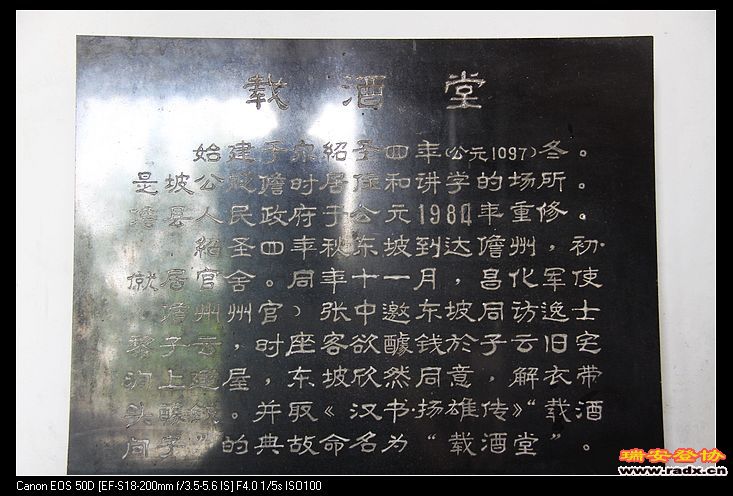 载酒堂
始建于宋紹圣四年(公元1097)冬。
是坡公贬儋时居住和讲学的场所。
儋县人民政府于公元1980年重修。
紹圣四年秋东坡到达儋州,初
就居官舍。同年十一月,昌化军使
(儋州州官)张中邀东坡同访逸士
黎子云,时座客欲醵钱於子云旧宅
涧上建屋,东坡欣然同意,解衣带
头醵钱。并取《汉书·扬雄传》“载酒
问字”的典故命名为“载酒堂”。
瑞安登协
www.radx.cn
Canon EOS 50D [EF-S18-200mm f/3.5-5.6 IS] F4.0 1/5s ISO100